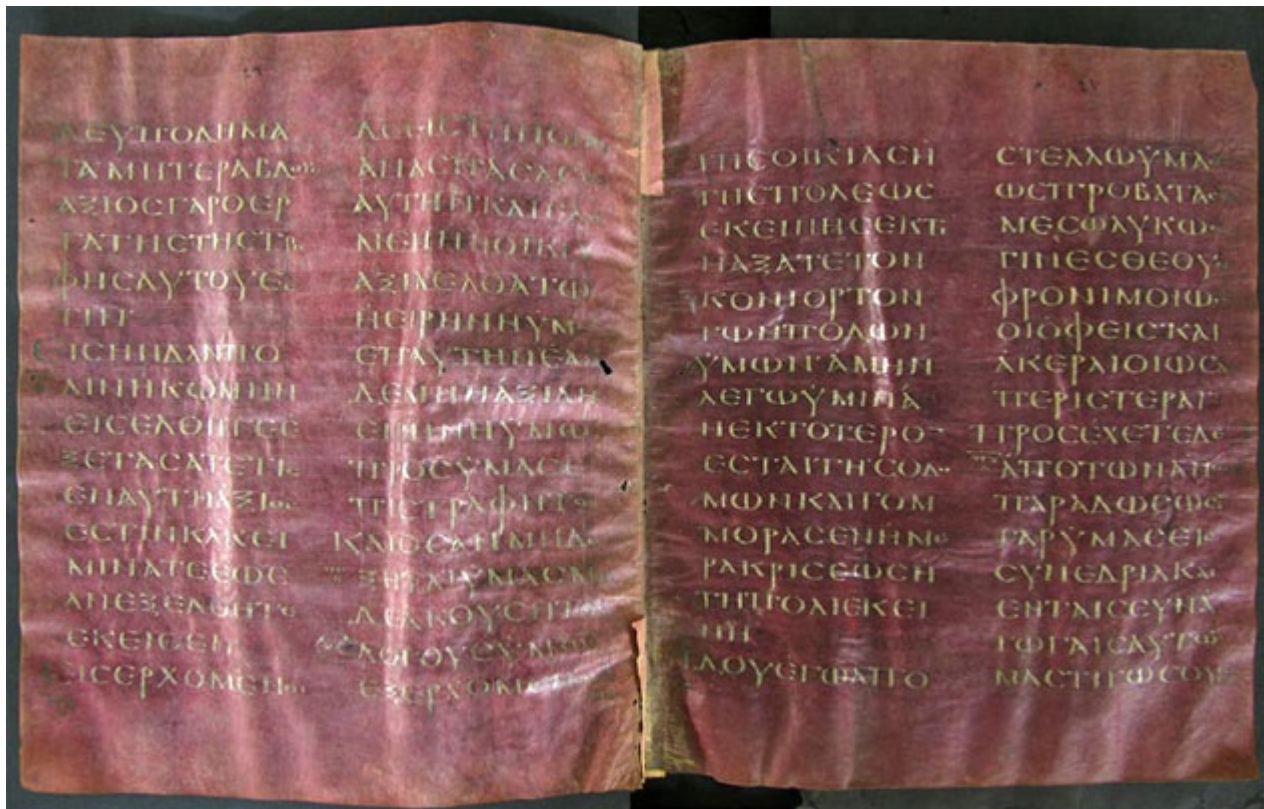 ΔΕΥΠΟΔΗΜΑ
ΤΑΜΗΤΕΡΑΒΔΟΥϹ
ΑΞΙΟϹΓΑΡΟΕΡ
ΓΑΤΗϹΤΗϹΤΡΟ
ΦΗϹΑΥΤΟΥΕ
ϹΤΙΝ
ΕΙϹΗΝΔΑΝΠΟ
ΛΙΝΗΚΩΜΗΝ
ΕΙϹΕΛΘΗΤΕΕ
ΞΕΤΑϹΑΤΕΤΙϹ
ΕΝΑΥΤΗΑΞΙΟϹ
ΕϹΤΙΝΚΑΚΕΙ
ΜΙΝΑΤΕΕΩϹ
ΑΝΕΞΕΛΘΗΤΕ
ΕΚΕΙΘΕΝ
ΕΙϹΕΡΧΟΜΕΝΟΙ
ΑϹΠΑϹΑϹΘΕ
ΑΥΤΗΝΚΑΙΕΑ
ΜΕΝΗΗΟΙΚΙ
ΑΞΙΑΕΛΘΑΤΩ
ΗΕΙΡΗΝΗΥΜΩ
ΕΠΑΥΤΗΝΕΑΝ
ΔΕΜΗΗΑΞΙΑΗ
ΕΙΡΗΝΗΥΜΩ
ΠΡΟϹΥΜΑϹΕ
ΠΙϹΤΡΑΦΗΤΩ
ΚΑΙΟϹΑΝΜΗΔΕ
ΞΗΤΑΙΥΜΑϹΜΗ
ΔΕΑΚΟΥϹΗΤΟΥϹ
ΛΟΓΟΥϹΥΜΩΝ
ΕΞΕΡΧΟΜΕΝΟΙ
ΤΗϹΟΙΚΙΑϹΗ
ΤΗϹΠΟΛΕΩϹ
ΕΚΕΙΝΗϹΕΚΤΙ
ΝΑΞΑΤΕΤΟΝ
ΚΟΝΙΟΡΤΟΝ
ΤΩΝΠΟΔΩΝ
ΥΜΩΝΑΜΗΝ
ΛΕΓΩΥΜΙΝΑ
ΝΕΚΤΟΤΕΡΟ
ΕϹΤΑΙΓΗϹΟΔΟ
ΜΩΝΚΑΙΓΟΜ
ΜΟΡΑϹΕΝΗΜΕ
ΡΑΚΡΙϹΕΩϹΗ
ΤΗΠΟΛΙΕΚΕΙ
ΝΗ
ΙΔΟΥΕΓΩΑΠΟ
ϹΤΕΛΛΩΥΜΑϹ
ΩϹΠΡΟΒΑΤΑΕΝ
ΜΕϹΩΛΥΚΩΝ
ΓΙΝΕϹΘΕΟΥΝ
ΦΡΟΝΙΜΟΙΩϹ
ΟΙΟΦΕΙϹΚΑΙ
ΑΚΕΡΑΙΟΙΩϹΑΙ
ΠΕΡΙϹΤΕΡΑΙ
ΠΡΟϹΕΧΕΤΕΔΕ
ΑΠΟΤΩΝΑΝΩΝ
ΠΑΡΑΔΩϹΟΥϹΙ
ΓΑΡΥΜΑϹΕΙϹ
ϹΥΝΕΔΡΙΑΚΑΙ
ΕΝΤΑΙϹϹΥΝΑ
ΓΩΓΑΙϹΑΥΤΩΝ
ΜΑϹΤΙΓΩϹΟΥϹΙ